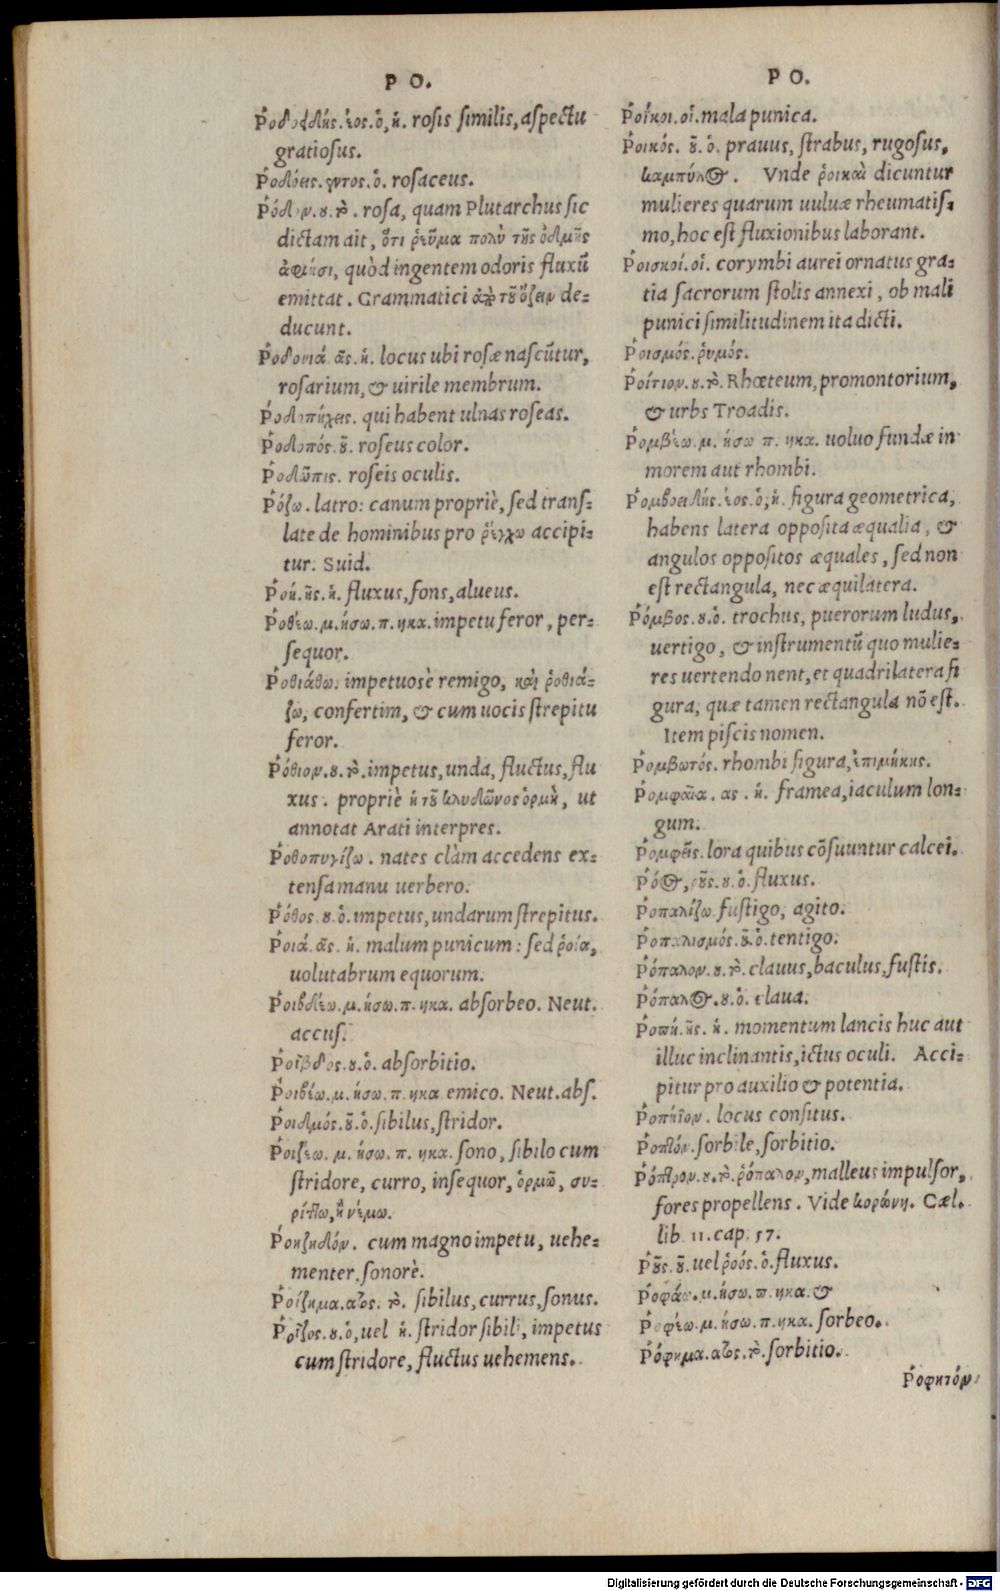 Ρ Ο.
Ῥοδοειδής. έος. ὁ, ἡ. rosis similis, aspectu
gratiosus.
Ῥοδόεις. εντος. ὁ. rosaceus.
Ῥόδον. ου. τὸ. rosa, quam Plutarchus sic
dictam ait, ὅτι ῥεῦμα πολὺ τῆς ὀδμῆς
ἀφίησι, quòd ingentem odoris fluxũ
emittat. Grammatici ἀπὸ τοῦ ὄζειν de-
ducunt.
Ῥοδονιά. ᾶς. ἡ. locus ubi rosæ nascũtur,
rosarium, & uirile membrum.
Ῥοδοπήχεις. qui habent ulnas roseas.
Ῥοδοπός. οῦ. roseus color.
Ῥοδῶπις. roseis oculis.
Ῥόζω. latro: canum propriè, sed trans-
late de hominibus pro ῥέγχω accipi-
tur. Suid.
Ῥοή. ῆς. ἡ. fluxus, fons, alueus.
Ῥοθέω. μ. ήσω. π. ηκα. impetu feror, per-
sequor.
Ῥοθιάθω. impetuosè remigo, καὶ ῥοθιά-
ζω, confertim, & cum uocis strepitu
feror.
Ῥόθιον. ου. τὸ. impetus, unda, fluctus, flu
xus. propriè ἡ τοῦ κλυδῶνος ὁρμὴ, ut
annotat Arati interpres.
Ῥοθοπυγίζω. nates clàm accedens ex-
tensa manu uerbero.
Ῥόθος. ου. ὁ. impetus, undarum strepitus.
Ῥοιά. ᾶς. ἡ. malum punicum: sed ῥοία,
uolutabrum equorum.
Ῥοιβδέω. μ. ήσω. π. ηκα. absorbeo. Neut.
accus.
Ῥοῖβδος. ου. ὁ. absorbitio.
Ῥοιβέω. μ. ήσω. π. ηκα emico. Neut. abs.
Ῥοιδμός. οῦ. ὁ. sibilus, stridor.
Ῥοιζέω. μ. ήσω. π. ηκα. sono, sibilo cum
stridore, curro, insequor, ὁρμῶ, συ-
ρίττω, ἢ νέμω.
Ῥοιζηδόν. cum magno impetu, uehe-
menter, sonorè.
Ῥοίζημα. ατος. τὸ. sibilus, currus, sonus.
Ῥοῖζος. ου. ὁ, uel ἡ. stridor sibili, impetus
cum stridore, fluctus uehemens.
Ρ Ο.
Ῥοΐκοι. οἱ. mala punica.
Ῥοικός. οῦ. ὁ. prauus, strabus, rugosus,
καμπύλος. Vnde ῥοικαὶ dicuntur
mulieres quarum uuluæ rheumatis-
mo, hoc est fluxionibus laborant.
Ῥοισκοί. οἱ. corymbi aurei ornatus gra-
tia sacrorum stolis annexi, ob mali
punici similitudinem ita dicti.
Ῥοισμός. ῥυμός.
Ῥοίτιον. ου. τὸ. Rhœteum, promontorium,
& urbs Troadis.
Ῥομβέω. μ. ήσω π. ηκα. uoluo fundæ in
morem aut rhombi.
Ῥομβοειδής. έος. ὁ, ἡ. figura geometrica,
habens latera opposita æqualia, &
angulos oppositos æquales, sed non
est rectangula, nec æquilatera.
Ῥόμβος. ου. ὁ. trochus, puerorum ludus,
uertigo, & instrumentũ quo mulie-
res uertendo nent, et quadrilatera fi
gura, quæ tamen rectangula nõ est.
Item piscis nomen.
Ῥομβωτός. rhombi figura, ἐπιμήκης.
Ῥομφαία. ας. ἡ. framea, iaculum lon-
gum.
Ῥομφεῖς. lora quibus cõsuuntur calcei.
Ῥόος, οῦς. ου. ὁ. fluxus.
Ῥοπαλίζω fustigo, agito.
Ῥοπαλισμός. οῦ. ὁ. tentigo.
Ῥόπαλον. ου. τὸ. clauus, baculus, fustis.
Ῥόπαλος. ου. ὁ. claua.
Ῥοπή. ῆς. ἡ. momentum lancis huc aut
illuc inclinantis, ictus oculi. Acci-
pitur pro auxilio & potentia.
Ῥοπήϊον. locus consitus.
Ῥοπτόν. sorbile, sorbitio.
Ῥόπτρον. ου. τὸ. ῥόπαλον, malleus impulsor,
fores propellens. Vide κορώνη. Cæl.
lib. 11. cap. 57.
Ῥοῦς. οῦ. uel ῥοός. ὁ. fluxus.
Ῥοφάω. μ. ήσω. π. ηκα. &
Ῥοφέω. μ. ήσω. π. ηκα. sorbeo.
Ῥόφημα. ατος. τὸ. sorbitio.
Ῥοφητόν
Digitalisierung gefördert durch die Deutsche Forschungsgemeinschaft - DFG